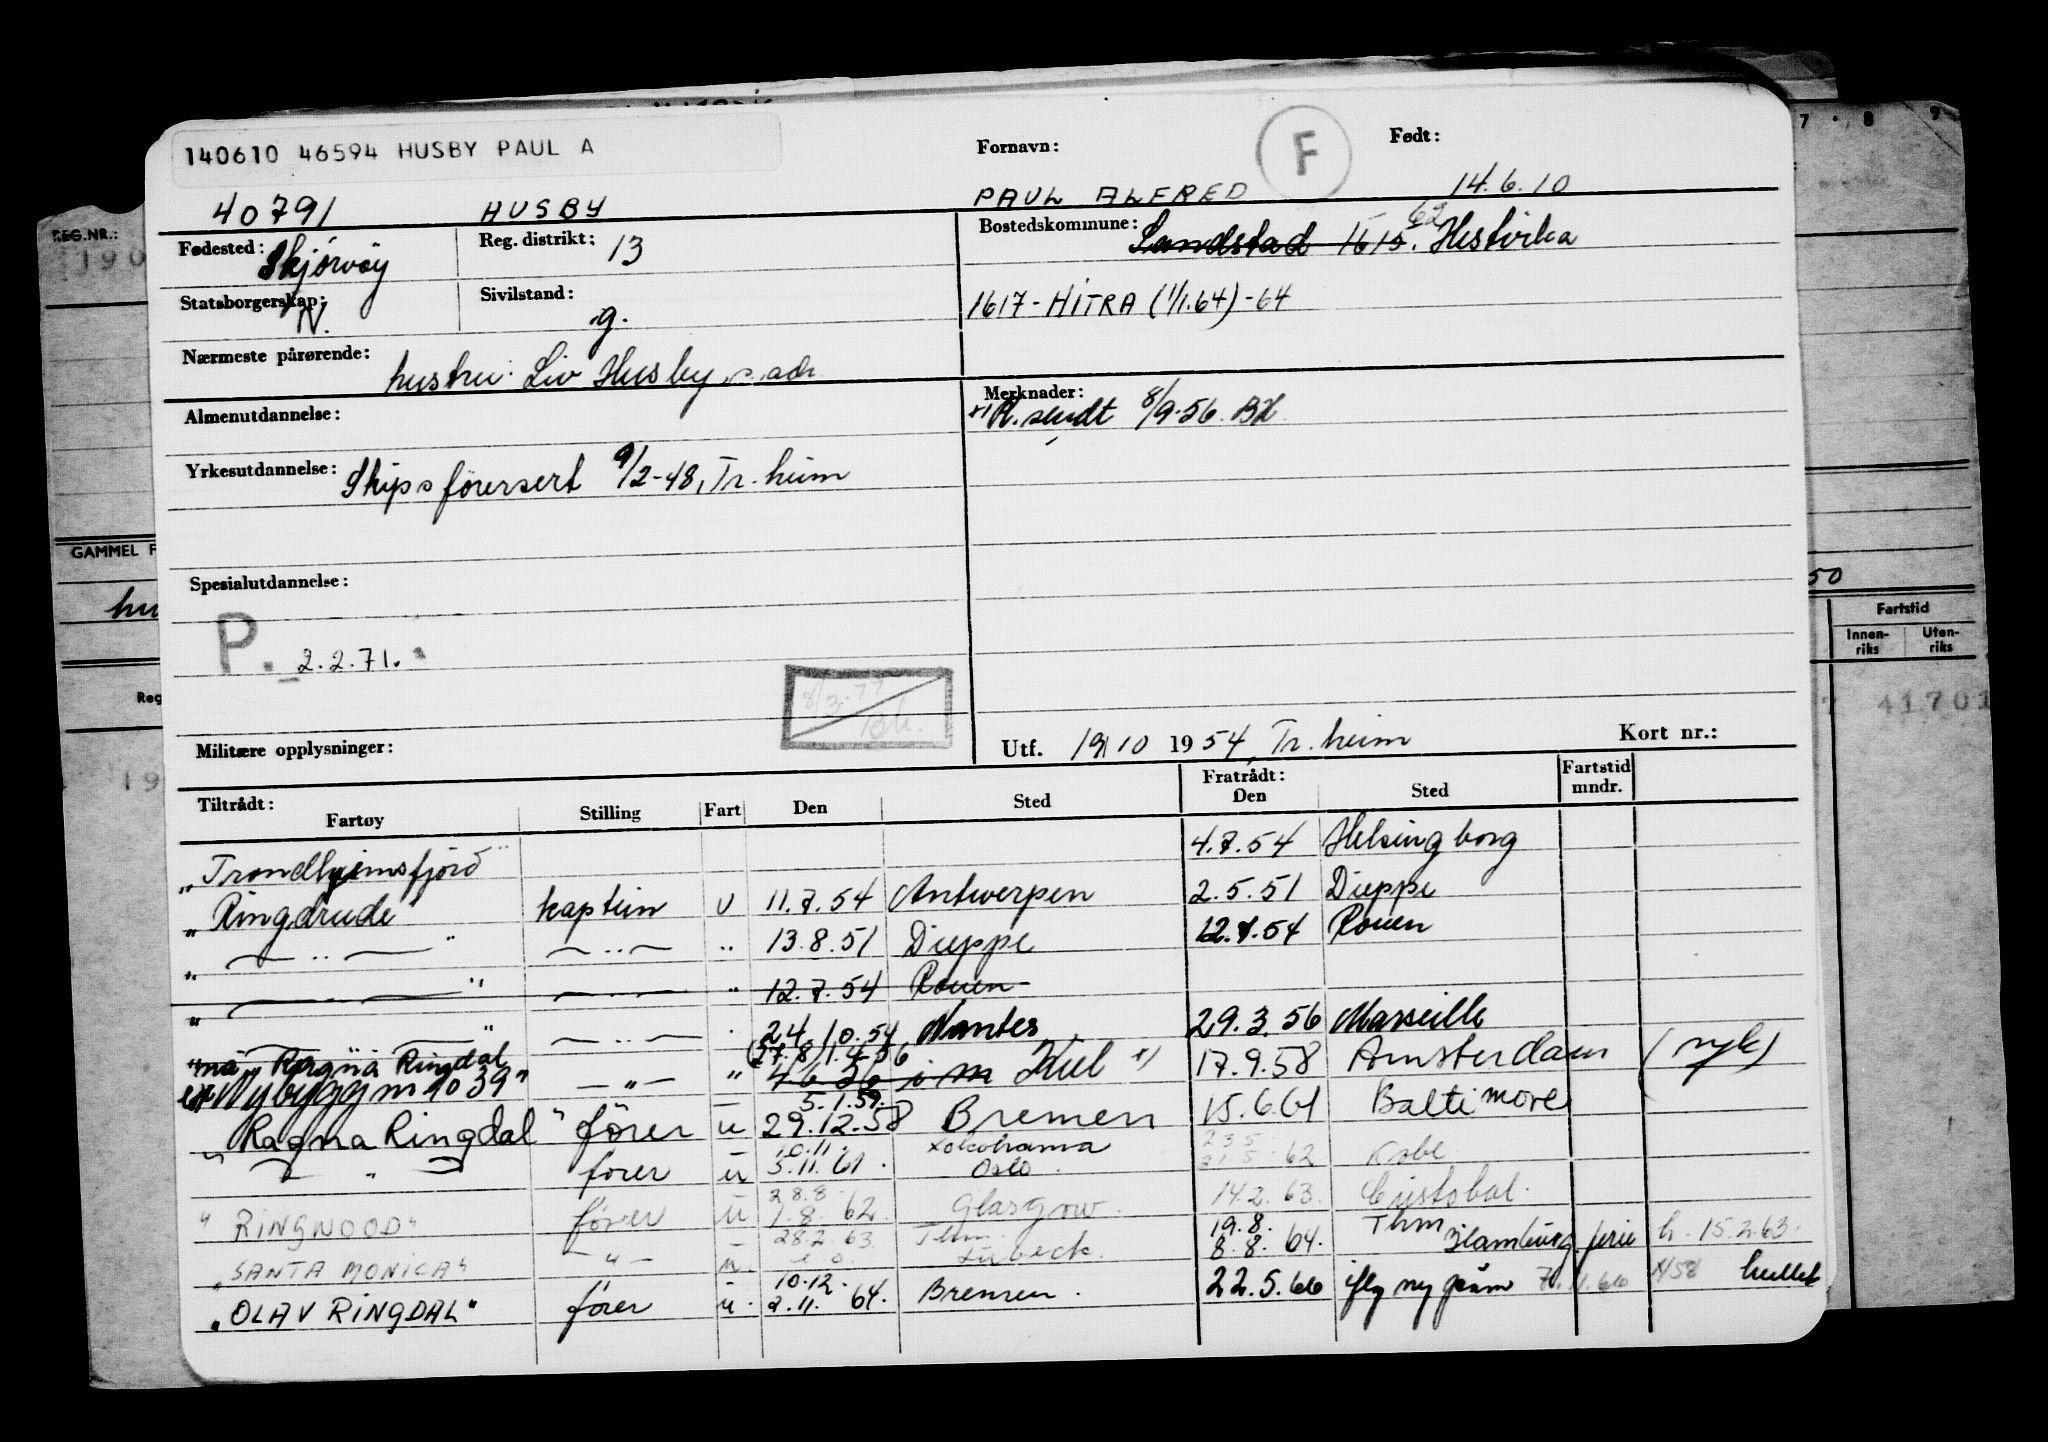 140610 46594 HUSBY PAUL A
Fornavn: F Født:
40791 HUSBY PAUL ALFRED 14.6.10
Fødested: Skjørvøy Reg. distrikt: 13 Bostedskommune: Sandstad 1615. 62 Hestvika
Statsborgerskap: N. Sivilstand: g. 1617-HITRA (1/1.64)-64
Nærmeste pårørende: hustru: Liv Husby s. adr.
Almenutdannelse: Merknader:
x) R. sendt 8/9-56. BH
Yrkesutdannelse: Skipsførersert 9/2-48, Tr.heim
Spesialutdannelse:
P. 2.2.71.
8/3-77
Bh.
Militære opplysninger: Utf. 19/10 1954 Tr.heim Kort nr.:
Tiltrådt: Fratrådt: Fartstid
Fartøy Stilling Fart Den Sted Den Sted mndr.
"Trondhjemsfjord" 4.7.54 Helsingborg
"Ringdrude" kaptein u 11.7.54 Antwerpen 2.5.51 Dieppe
" — " — " — " — " 13.8.51 Dieppe 12.7.54 Rouen
" — " — " 12.7.54 Rouen
" — " — " — " — 24.10.54 Nantes 29.3.56 Marseille
"nå "Ragna Ringdal (27.8) 1.4.56
ex Nybygg nr 1039" — " — " 4.6.56 i m Kiel x) 17.9.58 Amsterdam (syk)
5.1.59.
"Ragna Ringdal" fører u 29.12.58 Bremen 15.6.61 Baltimore
10.11. Yokohama 23.5
— " — fører u 3.11.61. Oslo. 21.5.62 Kobe
28.8.
"RINGWOOD" fører u 1.8.62. Glasgow. 14.2.63. Cristobal.
28.2.63 Thm. 19.8. Thm
"SANTA MONICA" — " — u. Lübeck. 8.8.64. Hamburg ferie h. 15.2.63.
10.12.
"OLAV RINGDAL" fører u. 2.11.64. Bremen. 22.5.66
REG.NR.:
190
GAMMEL F
hu
Reg
19
7 8 9
50
Fartstid
Innen-
riks
Uten-
riks
41701